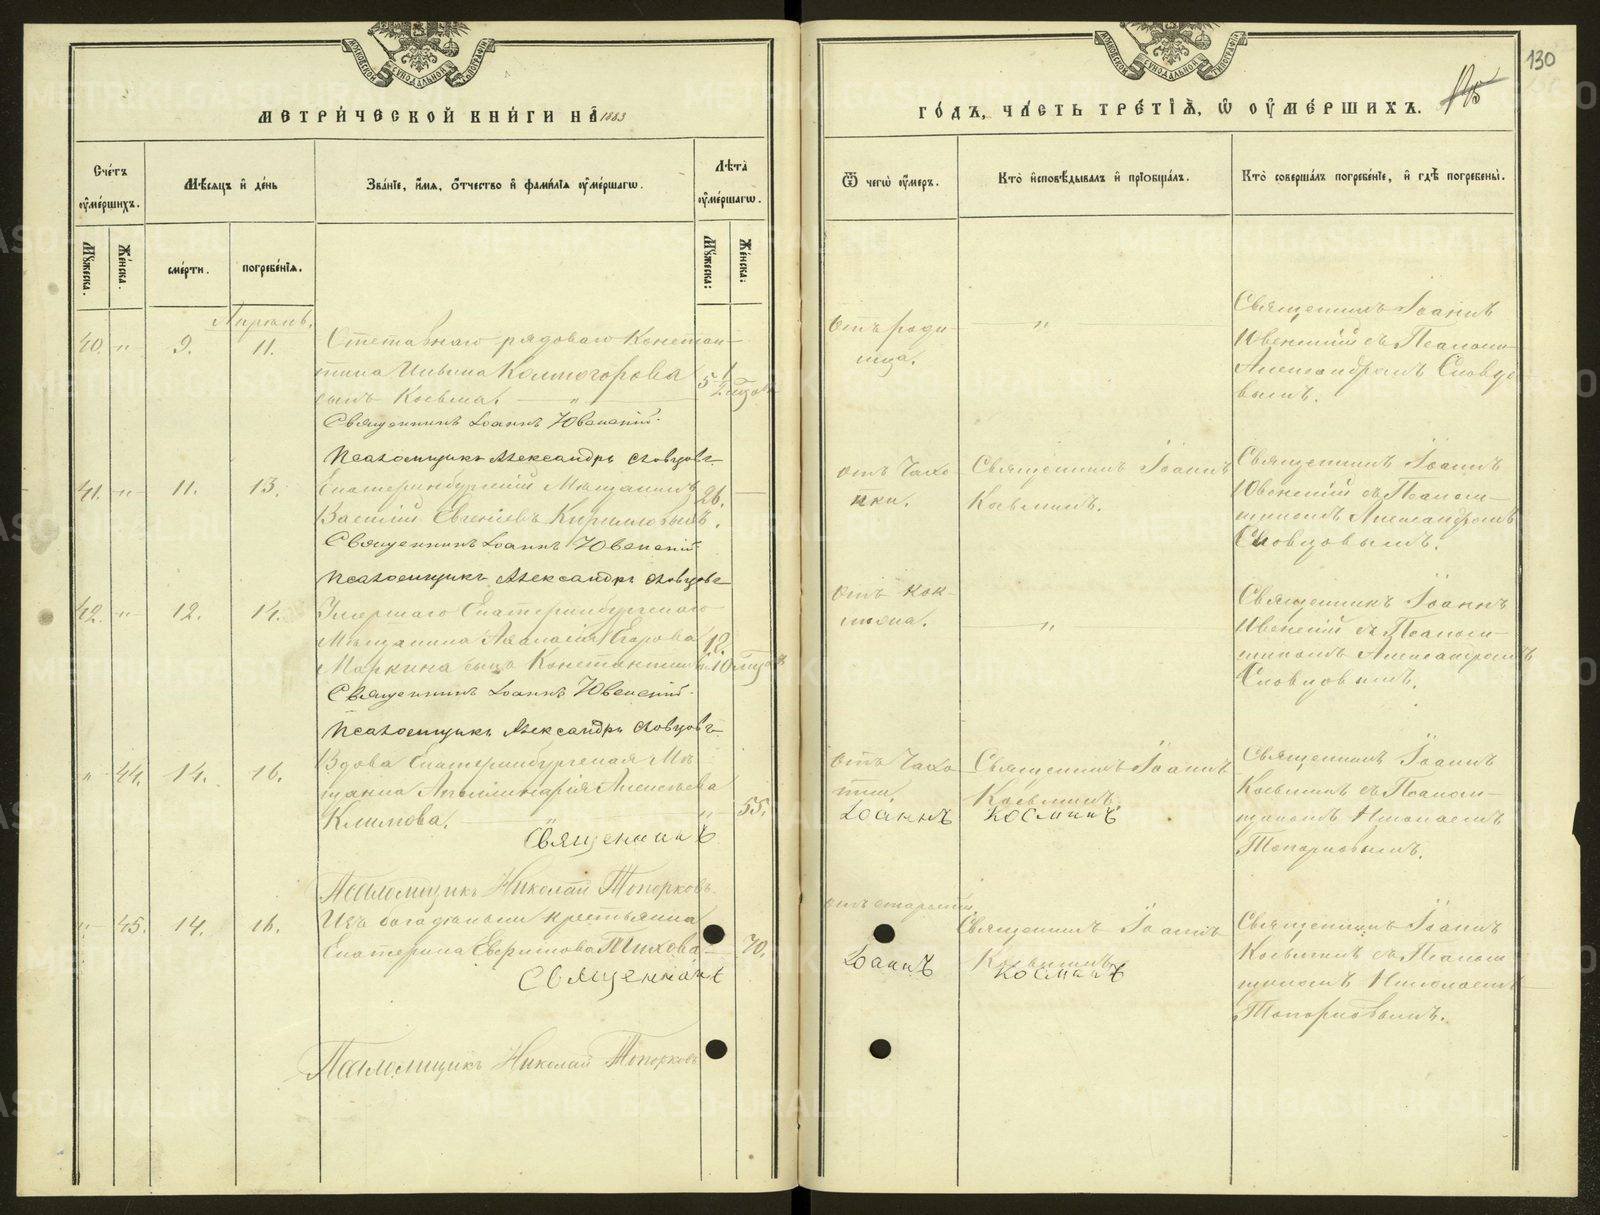 МЕТРИЧЕСКОЙ КНИГИ НА 1883
Счетъ умершихъ.
Мѣсяцъ и день
Званіе, имя, отчество и фамилія умершаго.
Лѣта умершаго.
Мужеска.
Женска.
смерти.
погребенія.
Мужеска:
Женска:
Апрѣль.
40. " 9. 11.
Отставнаго рядоваго Констан-
тина Ильина Колмогорова
сынъ Косьма. "
5 1/2
Священникъ Іоаннъ Ювенскій.
Псаломщикъ Александръ Словцовъ
41. " 11. 13.
Екатеринбургскій Мѣщанинъ
26.
Василій Евгеніевъ Кирилловыхъ.
Священникъ Іоаннъ Ювенскій.
Псаломщикъ Александръ Словцовъ
42. " 12. 14.
Умершаго Екатеринбургскаго
Мѣщанина Аѳанасія Егорова
Маркина сынъ Константинъ
Священникъ Іоаннъ Ювенскій.
Псаломщикъ Александръ Словцовъ
" 44. 14. 16.
Вдова Екатеринбургская Мѣ-
щанка Аполлинарія Алексѣева
Климова. " 55.
Священникъ
Псаломщикъ Николай Топорковъ
" 45. 14. 16.
Изъ богадѣльни крестьянка
Екатерина Евфимова Тихова 70.
Священникъ
Псаломщикъ Николай Топорковъ
130
ГОДЪ, ЧАСТЬ ТРЕТІЯ, Ѡ ОУМЕРШИХЪ.
Ѿ чегѡ умеръ.
Кто исповѣдывалъ и пріобщалъ.
Кто совершалъ погребеніе, и гдѣ погребены.
Отъ роди-
мца.
"
Священникъ Іоаннъ
Ювенскій съ Псалом-
Александромъ Словцо-
вымъ.
Отъ Чахо-
тки.
Священникъ Іоаннъ
Косьминъ.
Священникъ Іоаннъ
Ювенскій съ Псалом-
щикомъ Александромъ
Словцовымъ.
Отъ кок-
люша.
"
Священникъ Іоаннъ
Ювенскій съ Псалом-
щикомъ Александромъ
Словцовымъ.
Отъ Чахо-
тки
Іоаннъ
Священникъ Іоаннъ
Косьминъ.
Косминъ
Священникъ Іоаннъ
Косьминъ съ Псалом-
щикомъ Николаемъ
Топорковымъ.
Отъ старости
Іоаннъ
Священникъ Іоаннъ
Косьминъ
Косминъ
Священникъ Іоаннъ
Косьминъ съ Псалом-
щикомъ Николаемъ
Топорковымъ.
METRIKI.GASO-URAL.RU